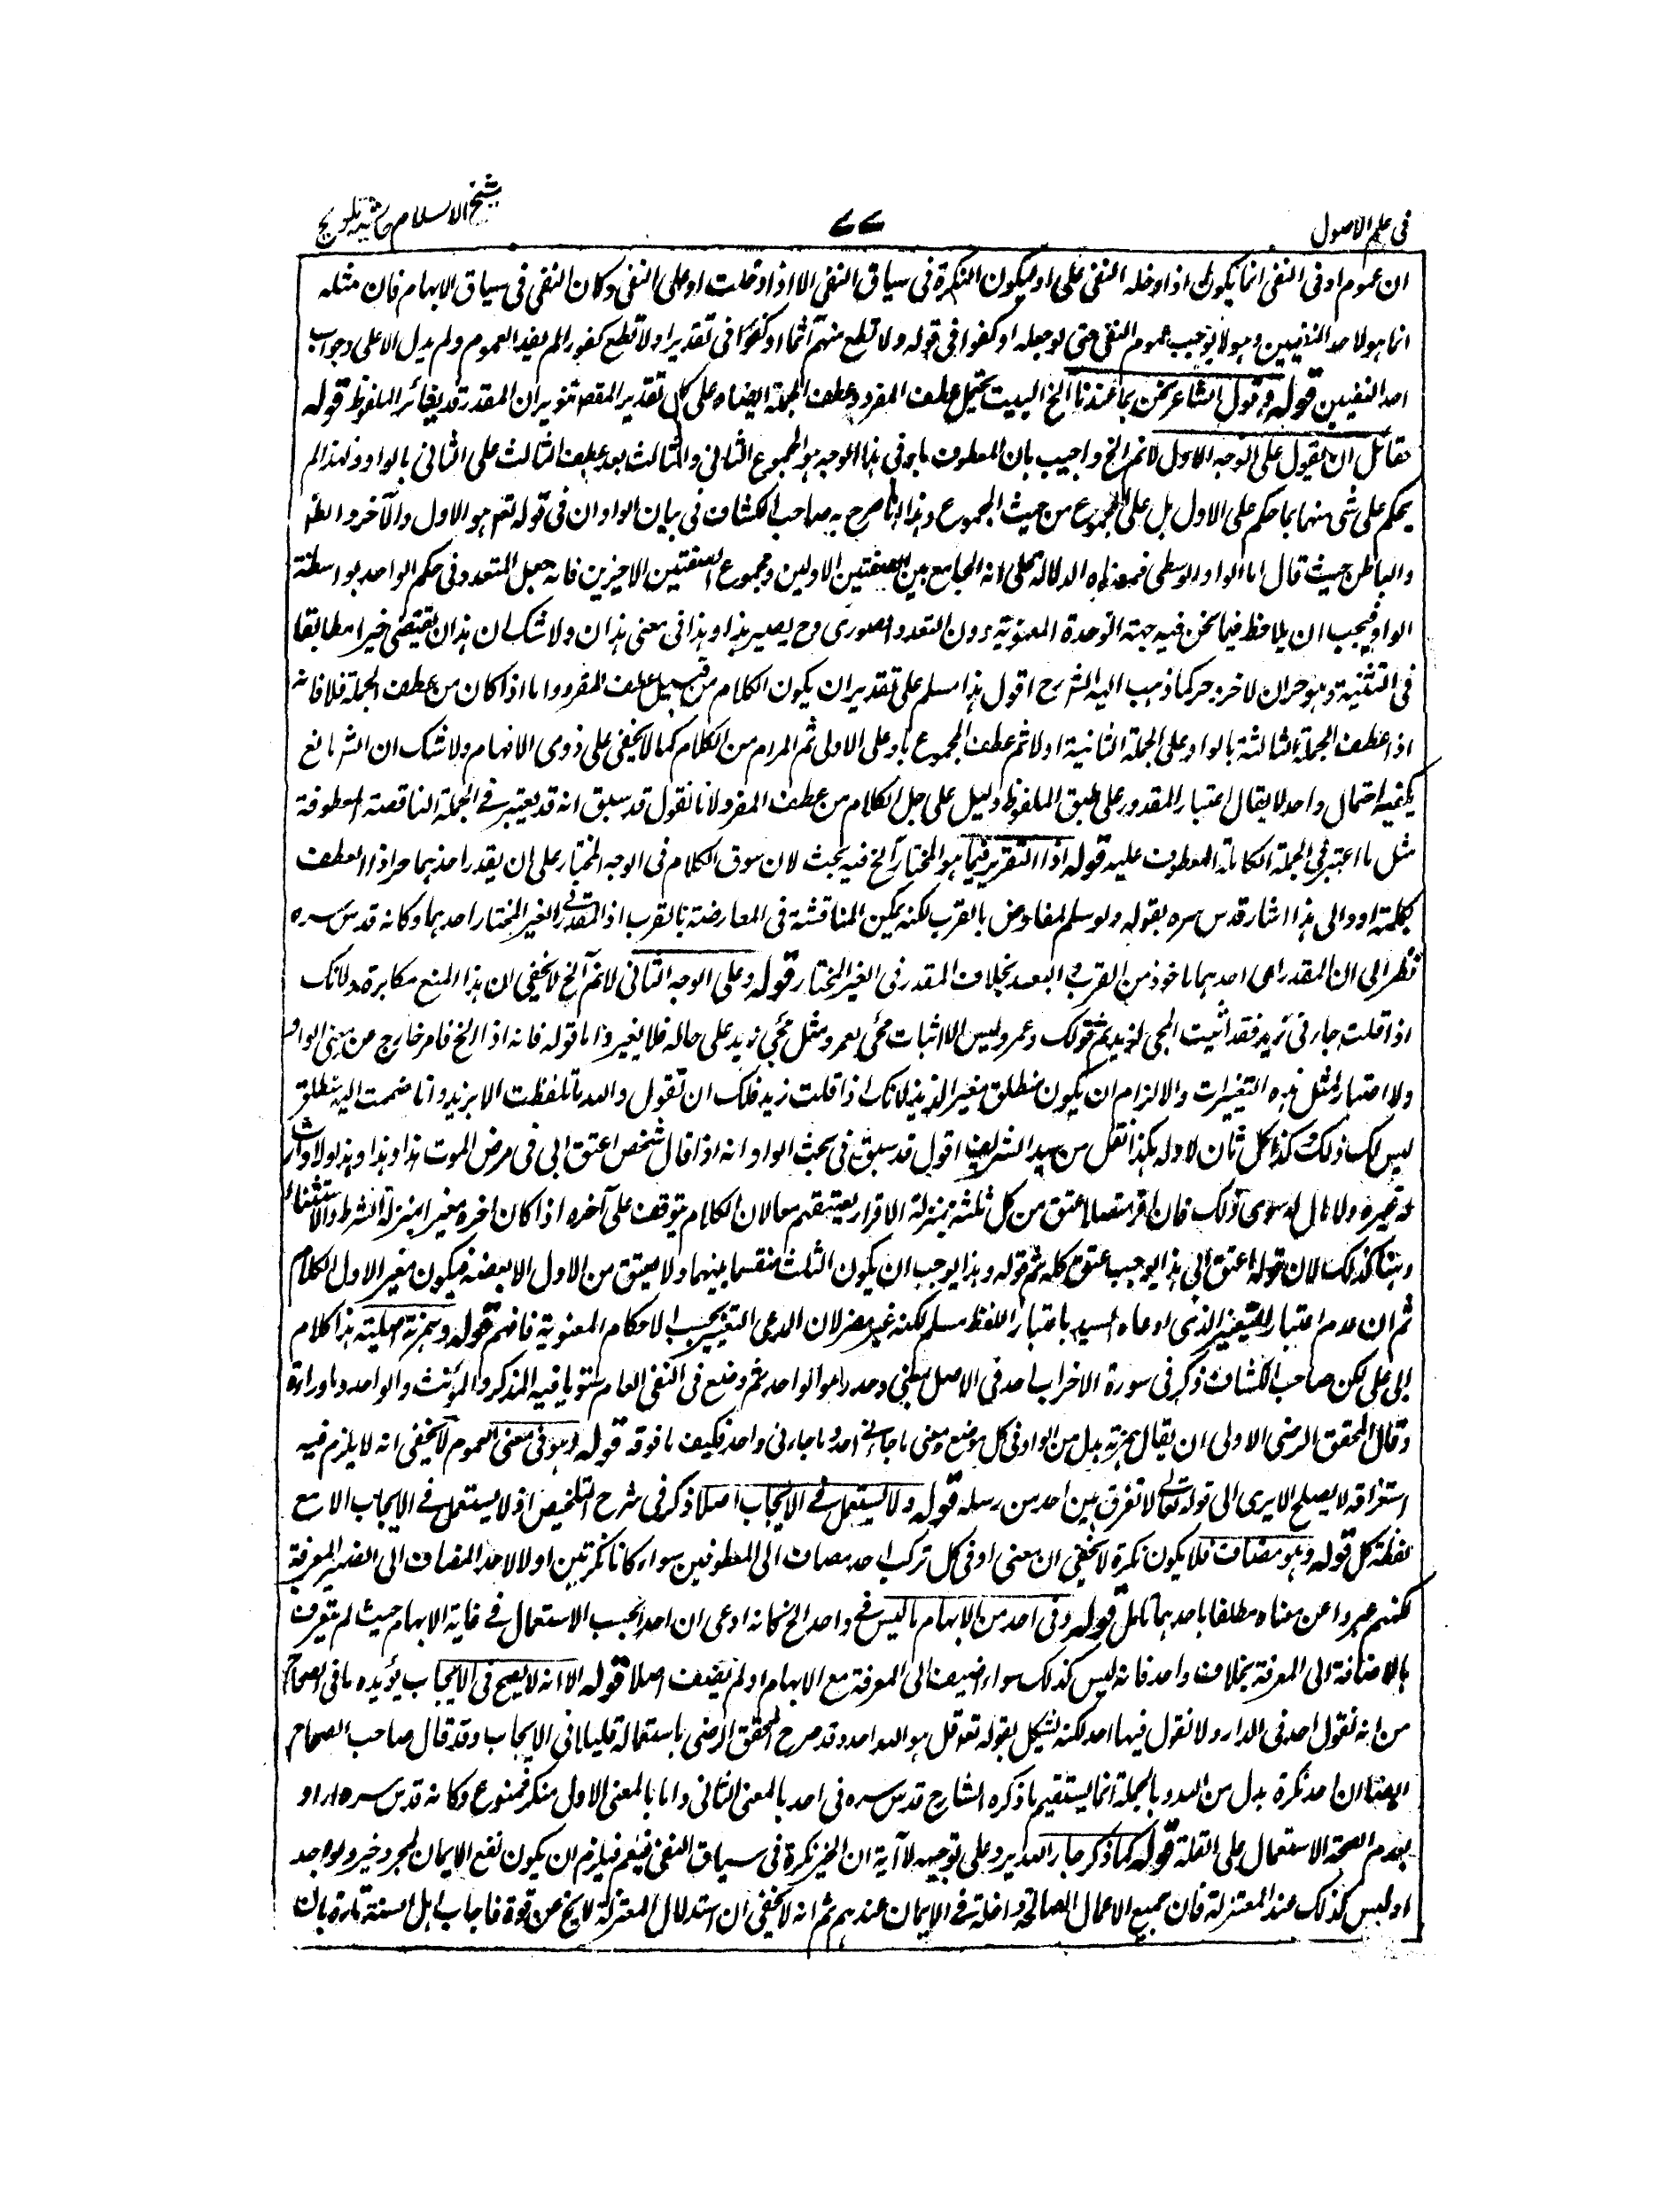 فى علم الاصول
٧٧
شيخ الاسلام حاشية تلويح
ان عموم او فى النفى انما يكون اذا دخله النفى على او ليكون النكرة فى سياق النفى الا اذا دخلت او على النفى وكان النفى فى سياق الابهام فان مثله
انما هو لاحد النفيين وهو لا يوجب عموم النفى حتى لو جعله او كفورا فى قوله ولا تطع منهم آثما او كفورا فى تقدير او لا تطع كفورا لم يفيد العموم ولم يدل الا على وجوب
احد النفيين قوله وقول الشاعر نحن بما عندنا الخ البيت يحتمل عطف المفرد وعطف الجملة ايضا وعلى كل تقدير المقصود تنوير ان المقدر قد يغائر الملفوظ قوله
لقائل ان يقول على الوجه الاول لا نم الخ واجيب بان المعطوف باو فى هذا الوجه هو المجموع الثانى والثالث بعد عطف الثالث على الثانى بالواو فهذا لم
يحكم على شئ منهما بما حكم على الاول بل على المجموع من حيث المجموع وهذا ما صرح به صاحب الكشاف فى بيان الواو ان فى قوله تع هو الاول والآخر والظاهر
والباطن حيث قال اما الواو الوسطى فمعناه الدلالة على انه الجامع بين الصفتين الاولين ومجموع الصفتين الاخيرين فانه جعل المتعدد فى حكم الواحد بواسطة
الواو فيجب ان يلاحظ فيما نحن فيه جهة الوحدة المعنوية دون التعدد الصورى وح يصير هذا وهذا فى معنى هذان ولا شك ان هذان يقتضى خبرا مطابقا
فى التثنية وهو حران لا خبر حر كما ذهب اليه الشرح اقول هذا مسلم على تقدير ان يكون الكلام من قبيل عطف المفرد واما اذا كان من عطف الجملة فلا فانه
اذا عطف الجملة الثالثة بالواو على الجملة الثانية اولا ثم عطف المجموع باو على الاولى ثم المرام من الكلام كما لا يخفى على ذوى الافهام ولا شك ان الشرع انع
يكفيه احتمال واحد لا يقال اعتبار المقدر على طبق الملفوظ دليل على حمل الكلام من عطف المفرد لانا نقول قد سبق انه قد يعتبر فى الجملة الناقصة المعطوفة
مثل ما اعتبر فى الجملة الكاملة المعطوف عليه قوله اذا التقرير فيما هو المختار الخ فيه بحث لان سوق الكلام فى الوجه المختار على ان يقدر احدهما حر اذا العطف
بكلمة او والى هذا اشار قدس سره بقوله ولو سلم لمفاوض بالقرب لكنه يمكن المناقشة فى المعارضة بالقرب اذ المقدر فى الغير المختار احدهما وكانه قدس سره
نظر الى ان المقدر اى احدهما ماخوذ من القرب والبعد بخلاف المقدر فى الغير المختار قوله وعلى الوجه الثانى لا نم الخ لا يخفى ان هذا المنع مكابرة ولانك
اذا قلت جاءنى زيد فقد اثبت المجئ لزيد ثم قولك وعمرو ليس الا اثبات مجئ عمرو ومثل مجئ زيد على حاله فلا يغير واما قوله فانه اذا الخ فامر خارج عن معنى الواو
ولا اعتبار لمثل هذه التغييرات والا لزام ان يكون منطلق مغير الزيد لانك اذا قلت زيد فلك ان تقول والله ما تلفظت الا بزيد وانا ضممت اليه منطلق
ليس لك ذلك وكذا كل ثان لاوله هكذا نقل من سيد الشريف اقول قد سبق فى بحث الواو انه اذا قال شخص اعتق ابى فى مرض الموت هذا وهذا وهذا ولا وارث
له غيره ولا مال له سوى ذلك فان اقر متصلا عتق من كل ثلثه بمنزلة الاقرار بعتقهم معا لان الكلام يتوقف على آخره اذا كان آخره مغيرا بمنزلة الشرط والاستثناء
وهنا كذلك لان قوله اعتق ابى هذا يوجب عتق كله ثم قوله وهذا يوجب ان يكون الثلث منقسما بينهما ولا يعتق من الاول الا بعضه فيكون مغير الاول الكلام
ثم ان عدم اعتبار التغيير الذى ادعاه السيد باعتبار اللفظ مسلم لكنه غير مضر لان المدعى التغيير بحسب الاحكام المعنوية فافهم قوله وهمزته اصلية هذا كلام
ابى على لكن صاحب الكشاف ذكر فى سورة الاحزاب احد فى الاصل بمعنى وحد وهو الواحد ثم وضع فى النفى العام مستويا فيه المذكر والمؤنث والواحد وما وراءه
وقال المحقق الرضى الاولى ان يقال همزته بدل من الواو فى كل موضع ومعنى ما جاءنى احد وما جاءنى واحد فكيف ما فوقه قوله وهو فى معنى العموم لا يخفى انه لا يلزم فيه
استغراقه لا يصلح الا يرى الى قوله تعالى لا نفرق بين احد من رسله قوله ولا يستعمل فى الايجاب اصلا ذكر فى شرح التلخيص او لا يستعمل فى الايجاب الا مع
لفظة كل قوله وهو مضاف فلا يكون نكرة لا يخفى ان معنى او فى كل تركيب احد مضاف الى المعطوفين سواء كانا نكرتين او لا لاحد المضاف الى الضمير المعرفة
لكنهم عبروا عن معناه مطلقا باحدهما تامل قوله وفى احد من الابهام ما ليس فى واحد الخ كانه ادعى ان احد بحسب الاستعمال فى غاية الابهام حيث لم يتعرف
بالاضافة الى المعرفة بخلاف واحد فانه ليس كذلك سواء اضيف الى المعرفة مع الابهام او لم يضف اصلا قوله الا انه لا يصح فى الايجاب يؤيده ما فى الصحاح
من انه نقول احد فى الدار ولا نقول فيها احد لكنه يشكل بقوله تع قل هو الله احد وقد صرح المحقق الرضى باستعماله قليلا فى الايجاب وقد قال صاحب الصحاح
ايضا ان احد نكرة بدل من الله وبالجملة انما يستقيم ما ذكره الشارح قدس سره فى احد بالمعنى الثانى واما بالمعنى الاول منكر فممنوع وكانه قدس سره اراد
بعدم الصحة الاستعمال على القلة قوله كما ذكر جار الله يرد على توجيهه لآية ان الخير نكرة فى سياق النفى فيعم فيلزم ان يكون نفع الايمان لمجرد خير ولو واحد
او ليس كذلك عند المعتزلة فان جميع الاعمال الصالحة داخلة فى الايمان عندهم ثم انه لا يخفى ان استدلال المعتزلة لا يخ عن قوة فاجاب اهل السنة تارة بان